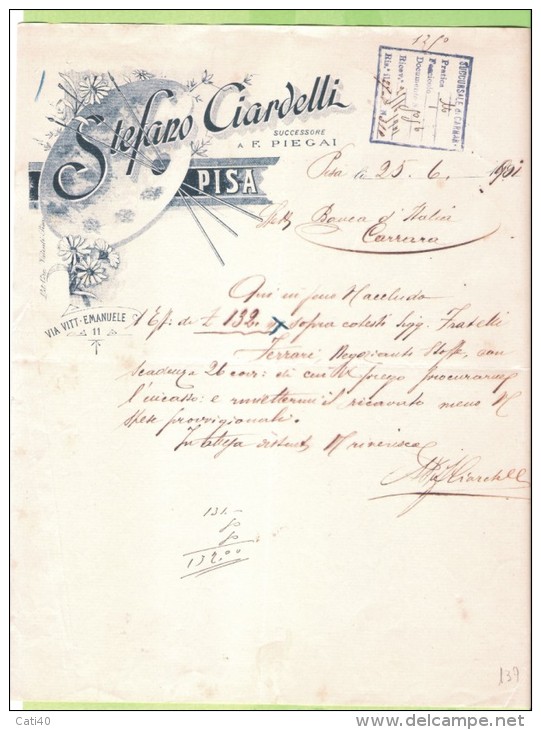 1250
SUCCURSALE di CARRARA
Pratica
Fascicolo 1
Documento
Ricev.
Stefano Ciardelli
SUCCESSORE
A F. PIEGAI
PISA
Pisa li 25. 6. 1901
Spett. Banca d'Italia
Carrara
VIA VITT. EMANUELE
11
Qui in seno Vi accludo
1 Eff: di £ 132. sopra cotesti Sigg. Fratelli
Ferrari, Negozianti Stoffe, con
scadenza 26 corr: di cui Vi prego procurarmi
l'incasso e rimettermi il ricavato meno
spese provvigionali.
In attesa distint. Vi riverisco
Ciardelli
131.-
50
50
132.00
139
Cati40
www.delcampe.net